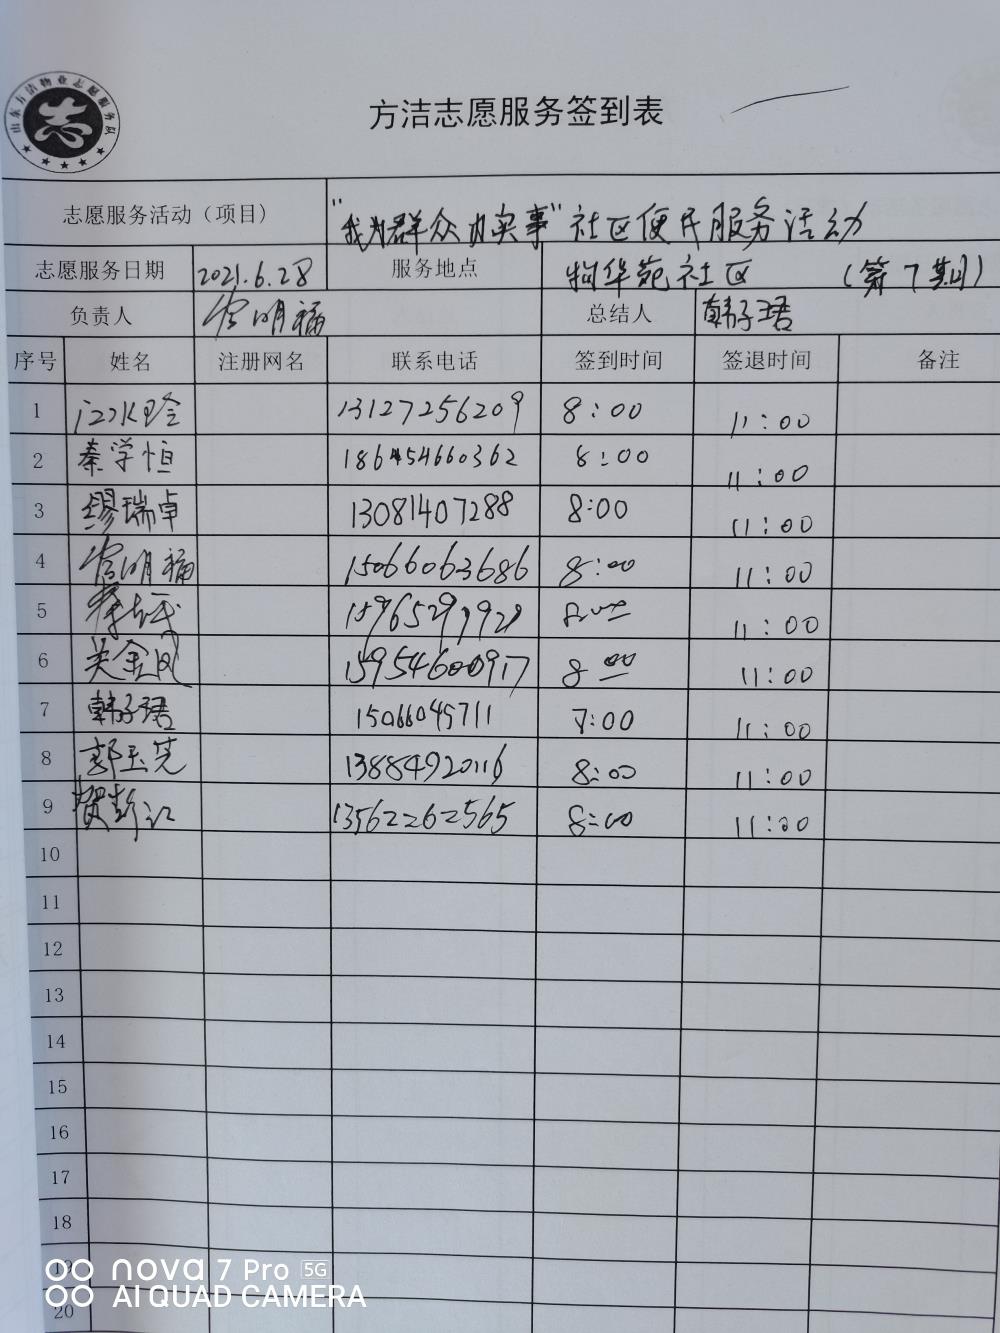 山东方洁物业志愿服务队
志
方洁志愿服务签到表
志愿服务活动（项目） "我为群众办实事"社区便民服务活动
志愿服务日期 2021.6.28 服务地点 物华苑社区 （第7期）
负责人 明福 总结人 韩子珺
序号 姓名 注册网名 联系电话 签到时间 签退时间 备注
1 13127256209 8:00 11:00
2 秦学恒 186454660362 8:00 11:00
3 缪瑞卓 13081407288 8:00 11:00
4 明福 15066063686 8:00 11:00
5 8:00 11:00
6 关金凤 15954600917 8:00 11:00
7 韩子珺 15066045711 7:00 11:00
8 郭玉芹 13884920116 8:00 11:00
9 贺彭江 13562262565 8:00 11:00
10
11
12
13
14
15
16
17
18
19
20
nova 7 Pro 5G
AI QUAD CAMERA